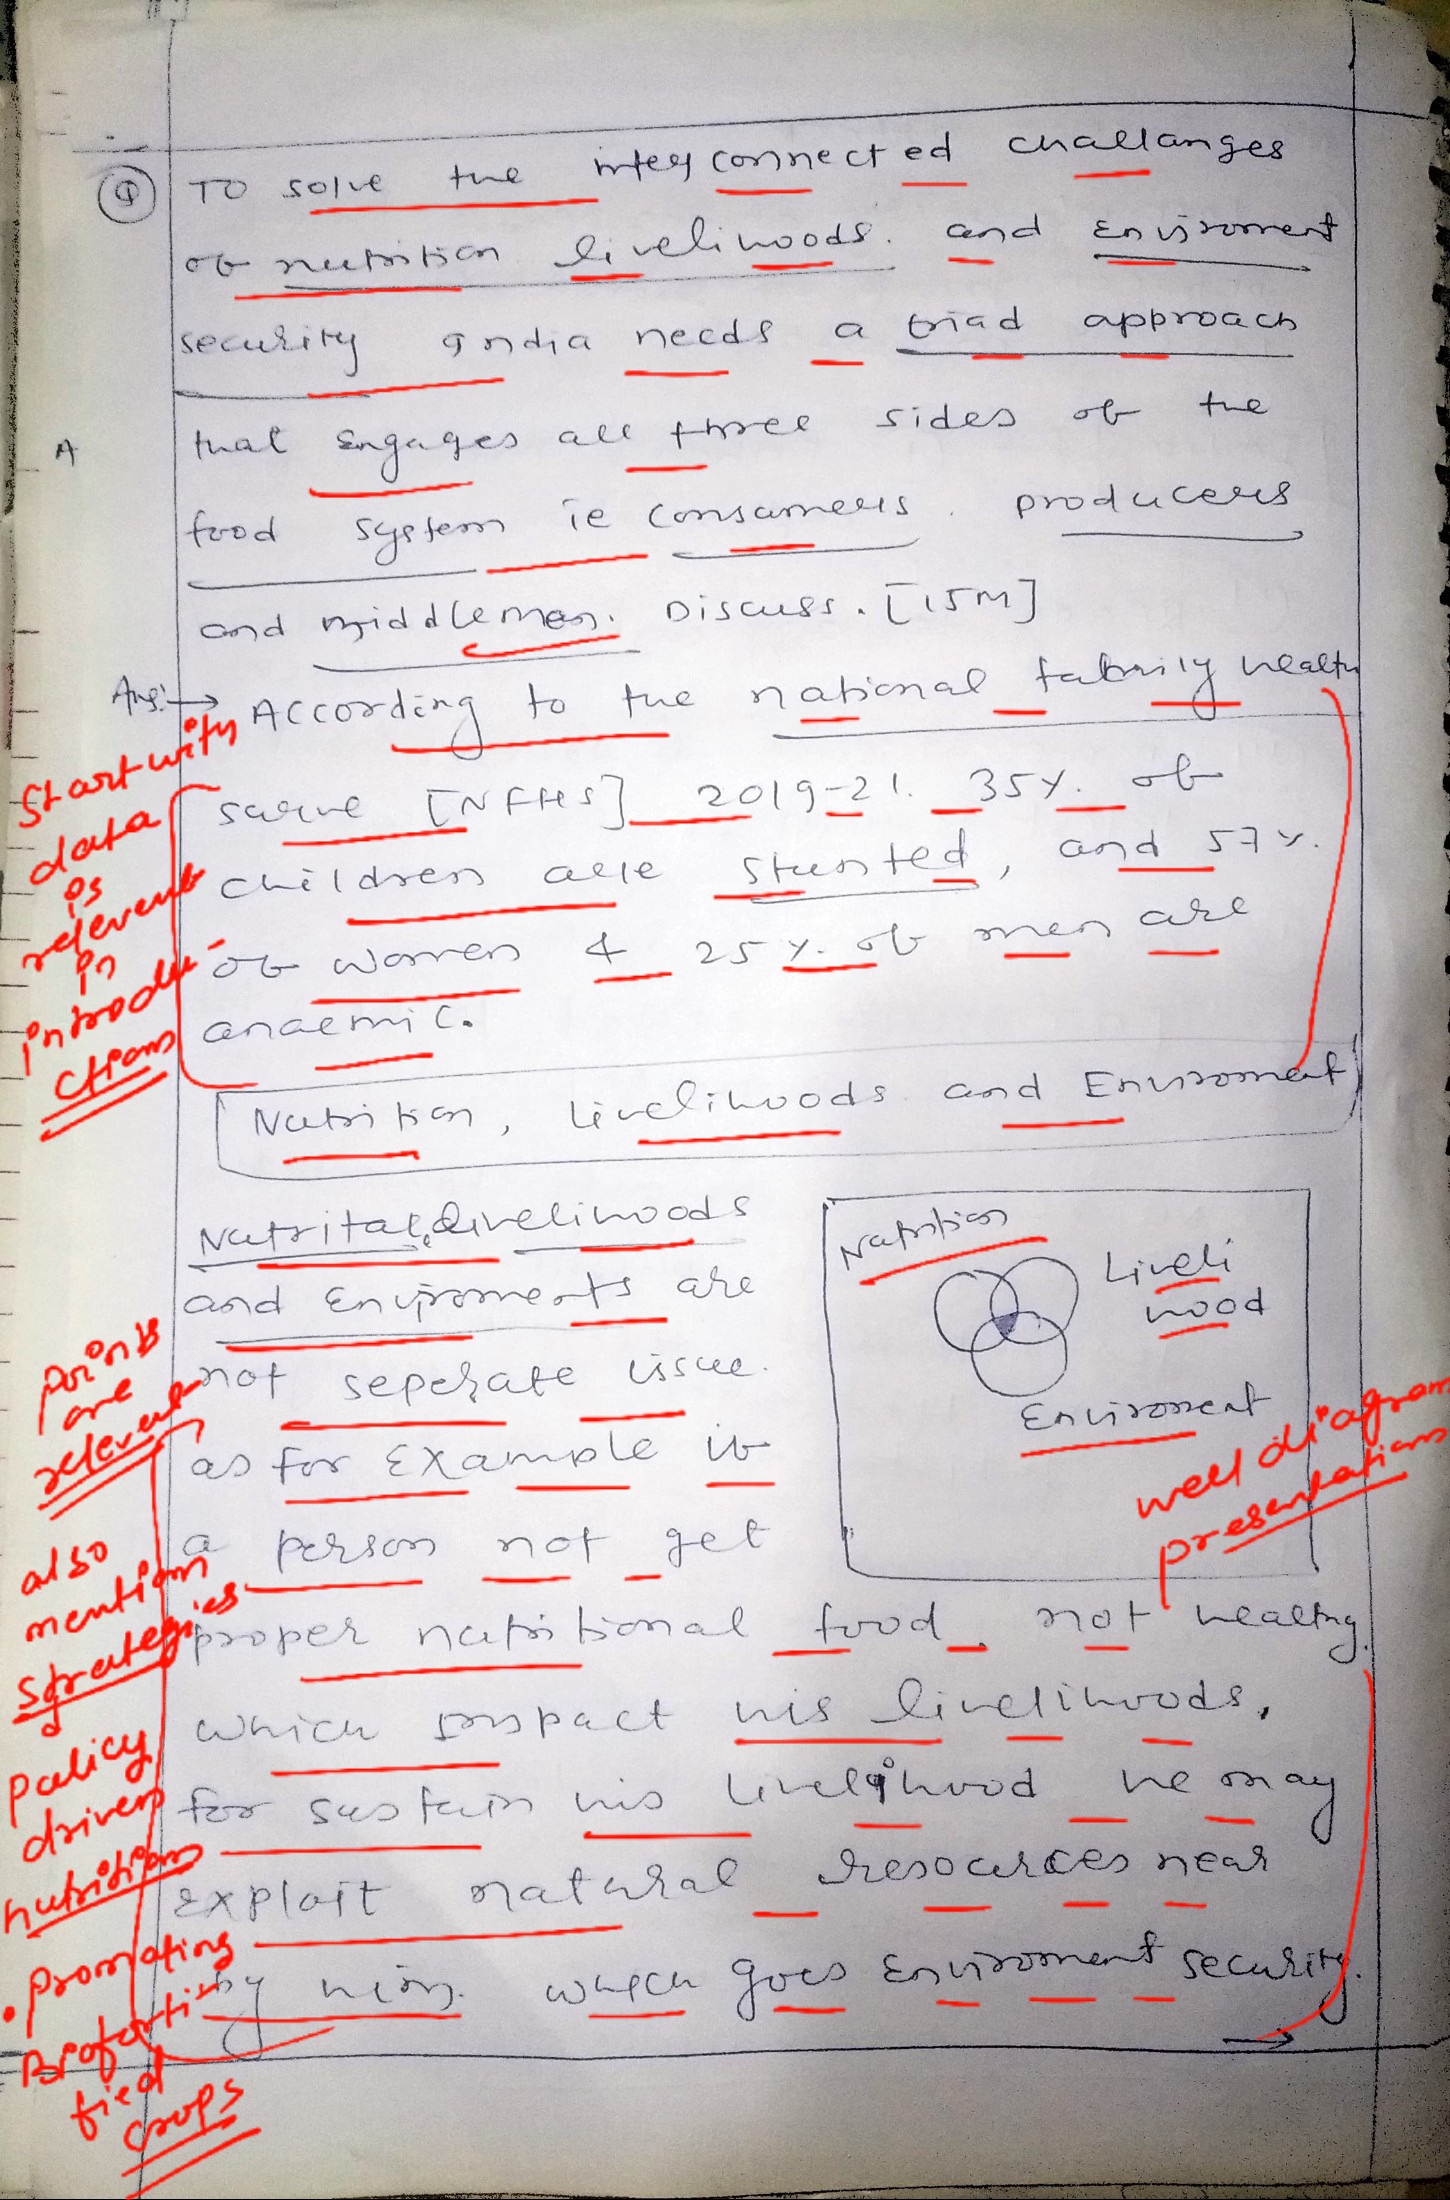 Q
TO solve the interconnected challanges
of nutrition livelihoods. and Enviroment
security India needs a triad approach
A
that Engages all three sides of the
food system ie consumers. producers
and middlemen. Discuss. [15M]
Ans: → According to the national family health
surve [NFHS] 2019-21. 35%. of
children are stunted, and 57%.
of women & 25%. of men are
anaemic.
Start with
data
is
relevent
in
introdu-
ctions
Nutrition, Livelihoods and Enviroment
Nutrition
Liveli
hood
Enviroment
well diagram
presentations
livelihoods
and Enviroments are
not seperate issue.
as for Example if
a person not get
proper nutritional food. not healthy.
which impact his livelihoods.
for sustain his livelihood he may
exploit natural resources near
by him. which goes Enviroment security.
points
are
relevent
also
mention
strategies
policy
driven
nutritions
• promoting
Biofortified
crops